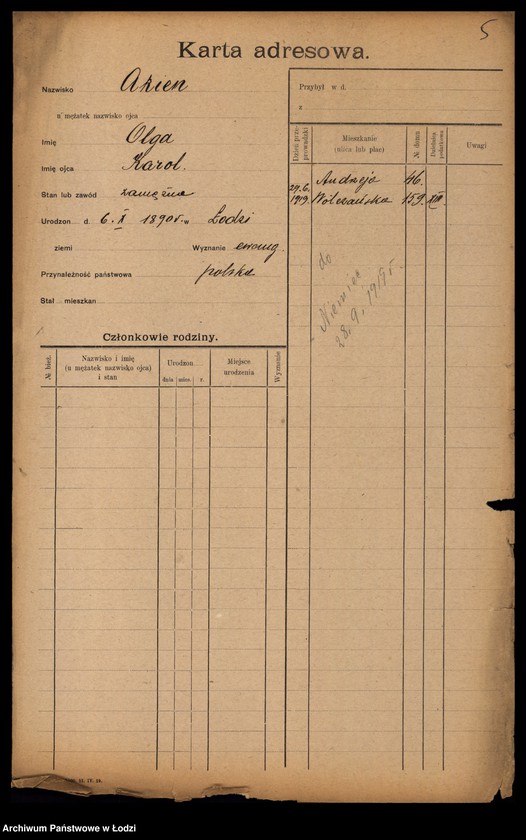 5
Karta adresowa.
Nazwisko Arien
u mężatek nazwisko ojca
Imię Olga
Imię ojca Karol.
Stan lub zawód zamężna
Urodzon d. 6. X 1890 r. w Łodzi
ziemi Wyznanie ewang.
Przynależność państwowa polska
Stał mieszkan
Członkowie rodziny.
№ bież.
Nazwisko i imię
(u mężatek nazwisko ojca)
i stan
Urodzon
dnia mies. r.
Miejsce
urodzenia
Wyznanie
Przybył w d.
z
Dzień prze-
prowadzki
Mieszkanie
(ulica lub plac)
№ domu
Uwagi
Andrzeja 46.
29.6.
1919. Wólczańska 159. XIII
do
Niemiec
28. 9. 1919 r.
Archiwum Państwowe w Łodzi